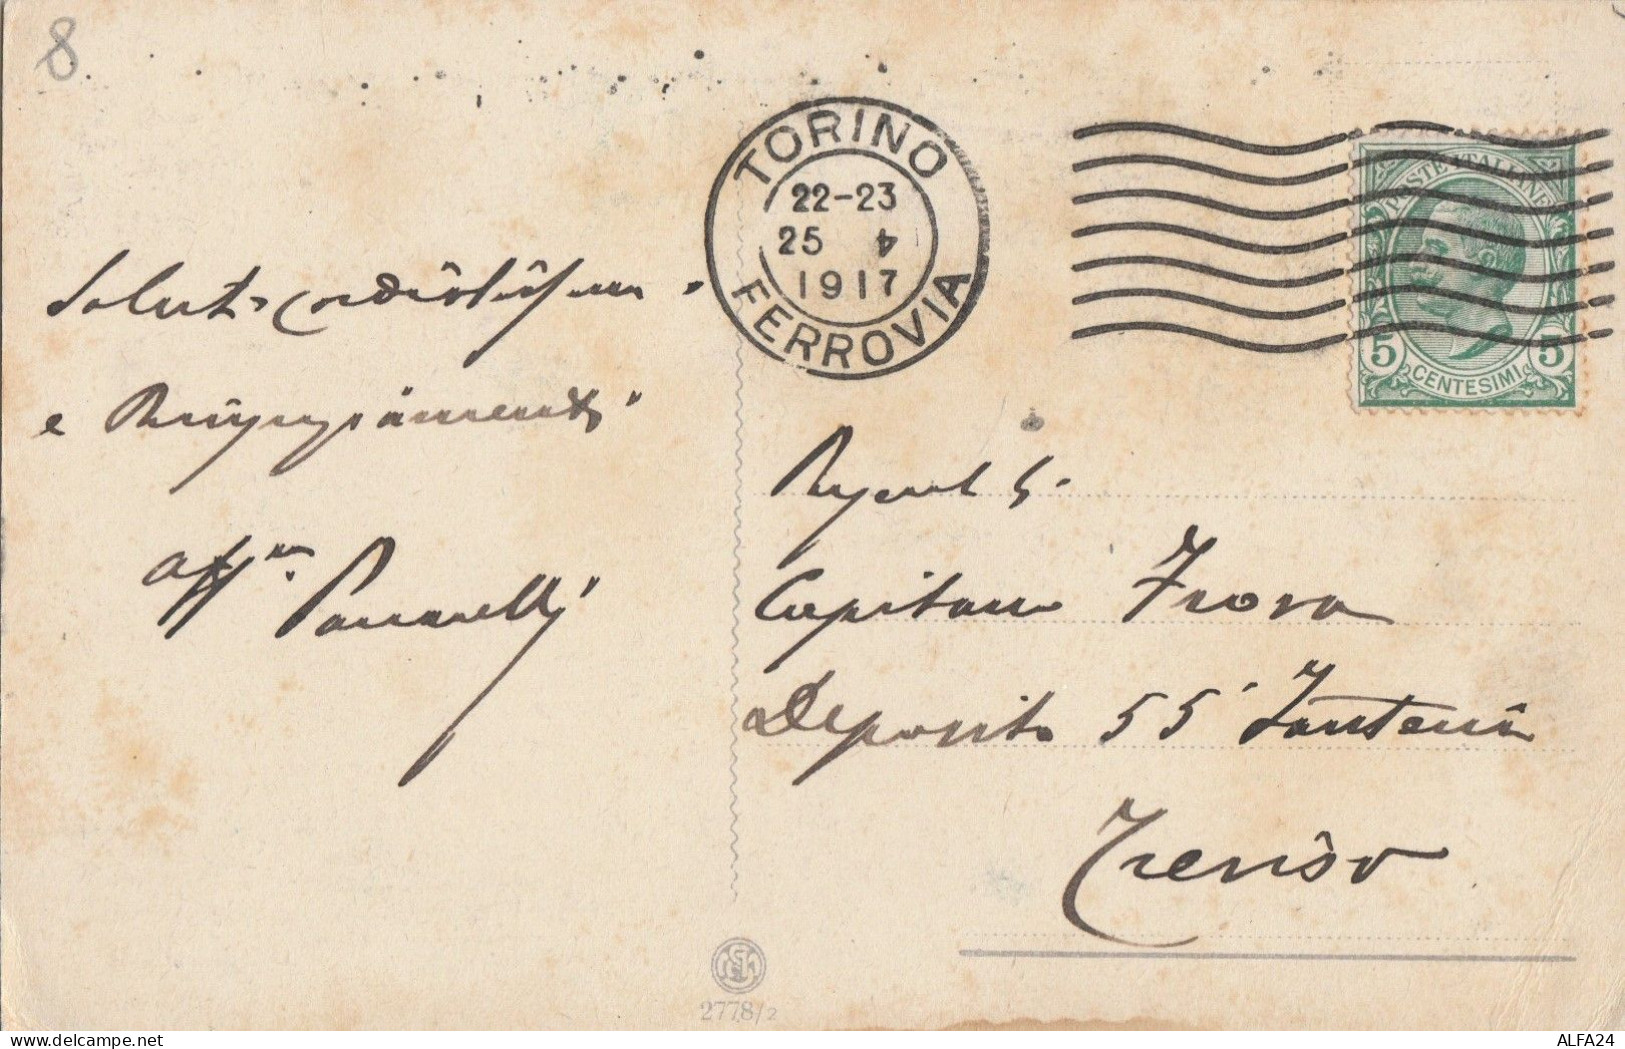 8
TORINO
22-23
25 4
1917
FERROVIA
POSTE ITALIANE
5 CENTESIMI 5
Saluti cordialissimi
e Ringraziamenti
aff.mo
Capitano Frova
Deposito 55° Fanteria
Treviso
2778/2
delcampe.net
ALFA24